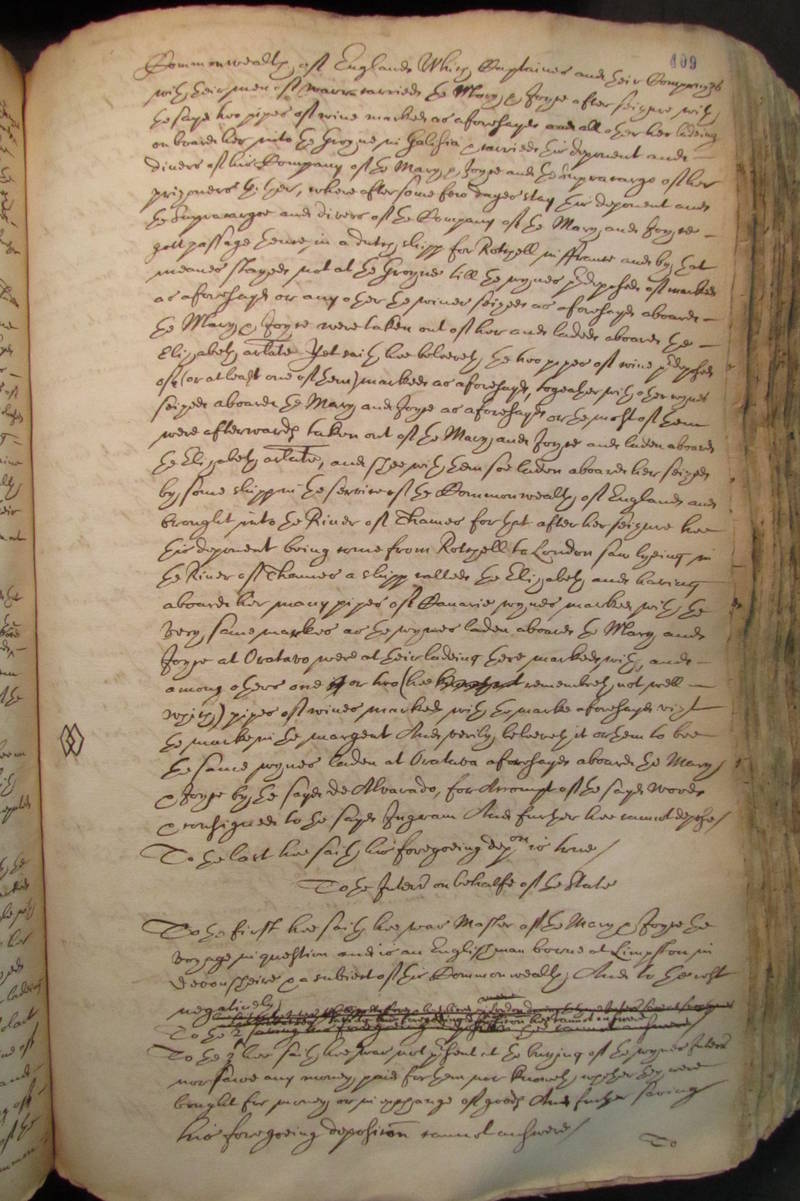 109
Commonwealth of England Which Captaines and their Companyes
with their men of warr carried the Mary & Joyce after seizure with
the sayd two pipes of wine marked as aforesayd and all other her lading
on board her into the Groyne in Galisia & carried this deponent and
divers of his Company of the Mary & Joyce and the supracargo of her
prizoners thither, where after some few dayes stay this deponent and
the supracargoe and divers of the Company of the Mary and Joyce
gott passage thence in a dutch shipp for Rochell in ffrance and by that
meanes stayed not at the Groyne till the wynes deposed of marked
as aforesayd or any other the wines seized as aforesayd aboard
the Mary & Joyce were taken out of her and laded aboard the
Elizabeth arlate Yet saith hee beleeveth the two pipes of wine deposed
of (or at least one of them) marked as aforesayd, together with other wynes
seized aboard the Mary and Joyce as aforesayd or the most of them
were afterwards taken out of the Mary and Joyce and laden aboard
the Elizabeth arlate, and shee with them soe laden aboard her seized
by some shipp in the service of the Commonwealth of England and
brought into the River of Thames for that after her seizure hee
this deponent being come from Rochell to London saw lyeing in
the River of Thames a shipp called the Elizabeth and having
aboard her many pipes of Canarie wynes marked with the
very same markes as the wynes laden aboard the Mary and
Joyce at Oratavo were at their lading there marked with, and
among others one or two (hee remembreth not well
which) pipes of wines marked with the marke aforesayd vizt
the marke in the margent And verily beleeveth it or them to bee
the same wynes laden at Oratava aforesayd aboard the Mary
& Joyce by the sayd de Alvarado, for Accompt of the sayd Woods
& consigned to the sayd Ingram And further hee cannot depose/
To the last hee saith his foregoeing depon is true/
To the Interr on behalfe of the State
To the first hee saith hee was Master of the Mary & Joyce the
voyage in question and is an Englishman borne at Limpston in
Devonsheire & a subiect of this Commonwealth, And to the rest
negatively
To the 2
To the 2 hee saith hee was not present at the buying of the wynes Interr
nor sawe any money paid for them nor knoweth whether they were
bought for money or in exchange of goods And further saving
his foregoeing deposition cannot answere/
To